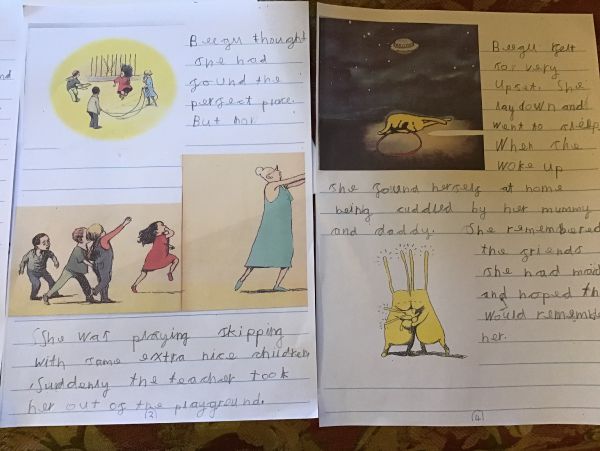 Beegu thought
she had
found the
perfect place.
But not
She was playing skipping
with some extra nice children
Suddenly the teacher took
her out of the playground.
(2)
Beegu felt
so very
upset. She
lay down and
went to sleep
When she
woke up
she found herself at home
being cuddled by her mummy
and daddy. She remembered
the friends
she had mad
and hoped th
would remembe
her.
(4)